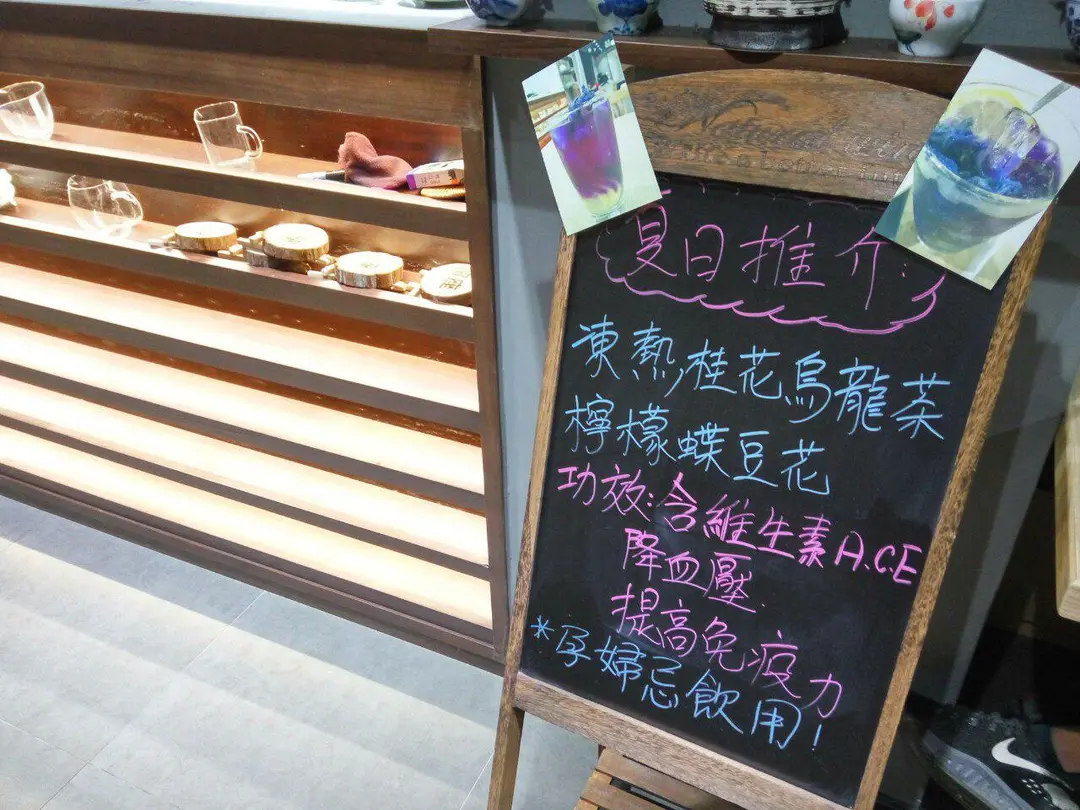 夏日推介:
凍熱桂花烏龍茶
檸檬蝶豆花
功效:含維生素A.C.E
降血壓
提高免疫力
*孕婦忌飲用!